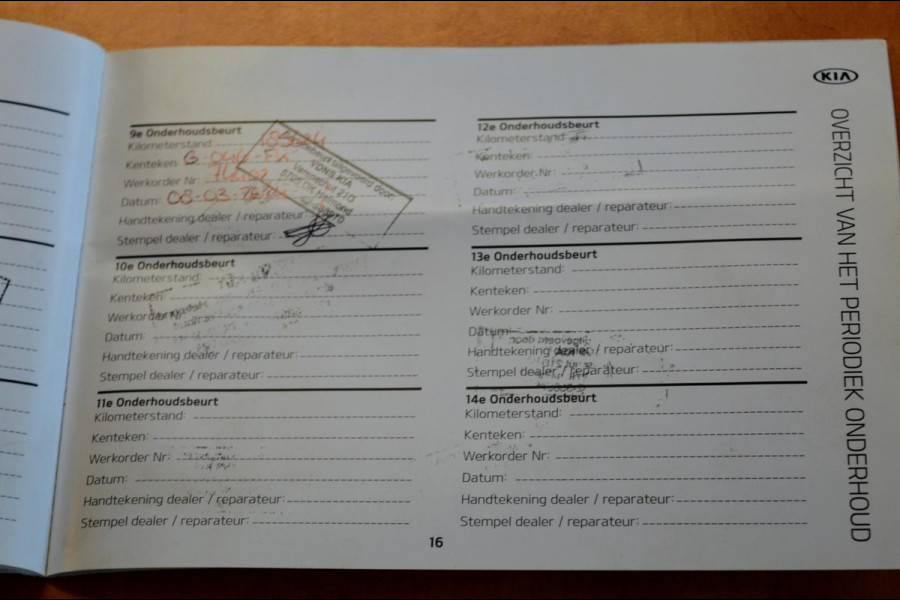 KIA
OVERZICHT VAN HET PERIODIEK ONDERHOUD
9e Onderhoudsbeurt
Kilometerstand:
Kenteken:
Werkorder Nr:
Datum: 08-03-
Handtekening dealer / reparateur:
Stempel dealer / reparateur:
door:
VONS KIA
10e Onderhoudsbeurt
Kilometerstand:
Kenteken:
Werkorder Nr:
Datum:
Handtekening dealer / reparateur:
Stempel dealer / reparateur:
11e Onderhoudsbeurt
Kilometerstand:
Kenteken:
Werkorder Nr:
Datum:
Handtekening dealer / reparateur:
Stempel dealer / reparateur:
12e Onderhoudsbeurt
Kilometerstand:
Kenteken:
Werkorder Nr:
Datum:
Handtekening dealer / reparateur:
Stempel dealer / reparateur:
13e Onderhoudsbeurt
Kilometerstand:
Kenteken:
Werkorder Nr:
Datum:
Handtekening dealer / reparateur:
Stempel dealer / reparateur:
14e Onderhoudsbeurt
Kilometerstand:
Kenteken:
Werkorder Nr:
Datum:
Handtekening dealer / reparateur:
Stempel dealer / reparateur:
16